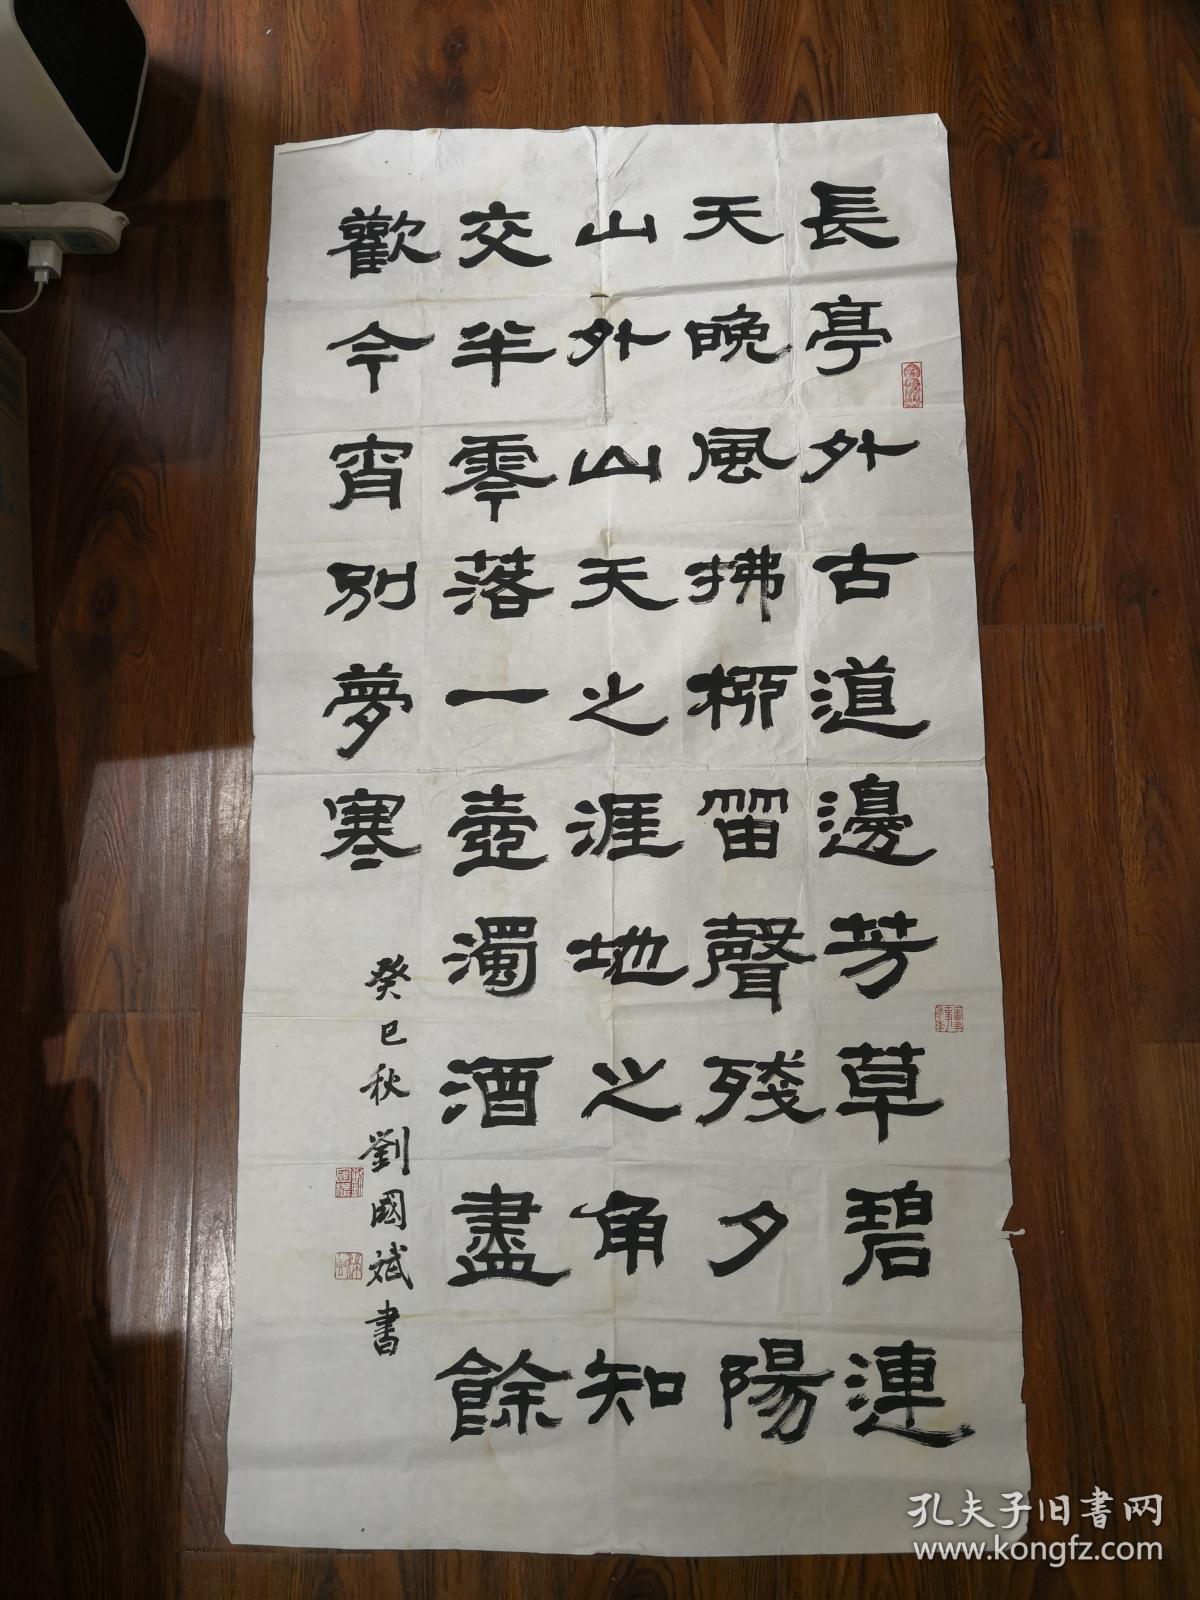 長亭外古道邊芳草碧連
天晚風拂柳笛聲殘夕陽
山外山天之涯地之角知
交半零落一壺濁酒盡餘
歡今宵別夢寒
癸巳秋劉國斌書
孔夫子旧書网
www.kongfz.com